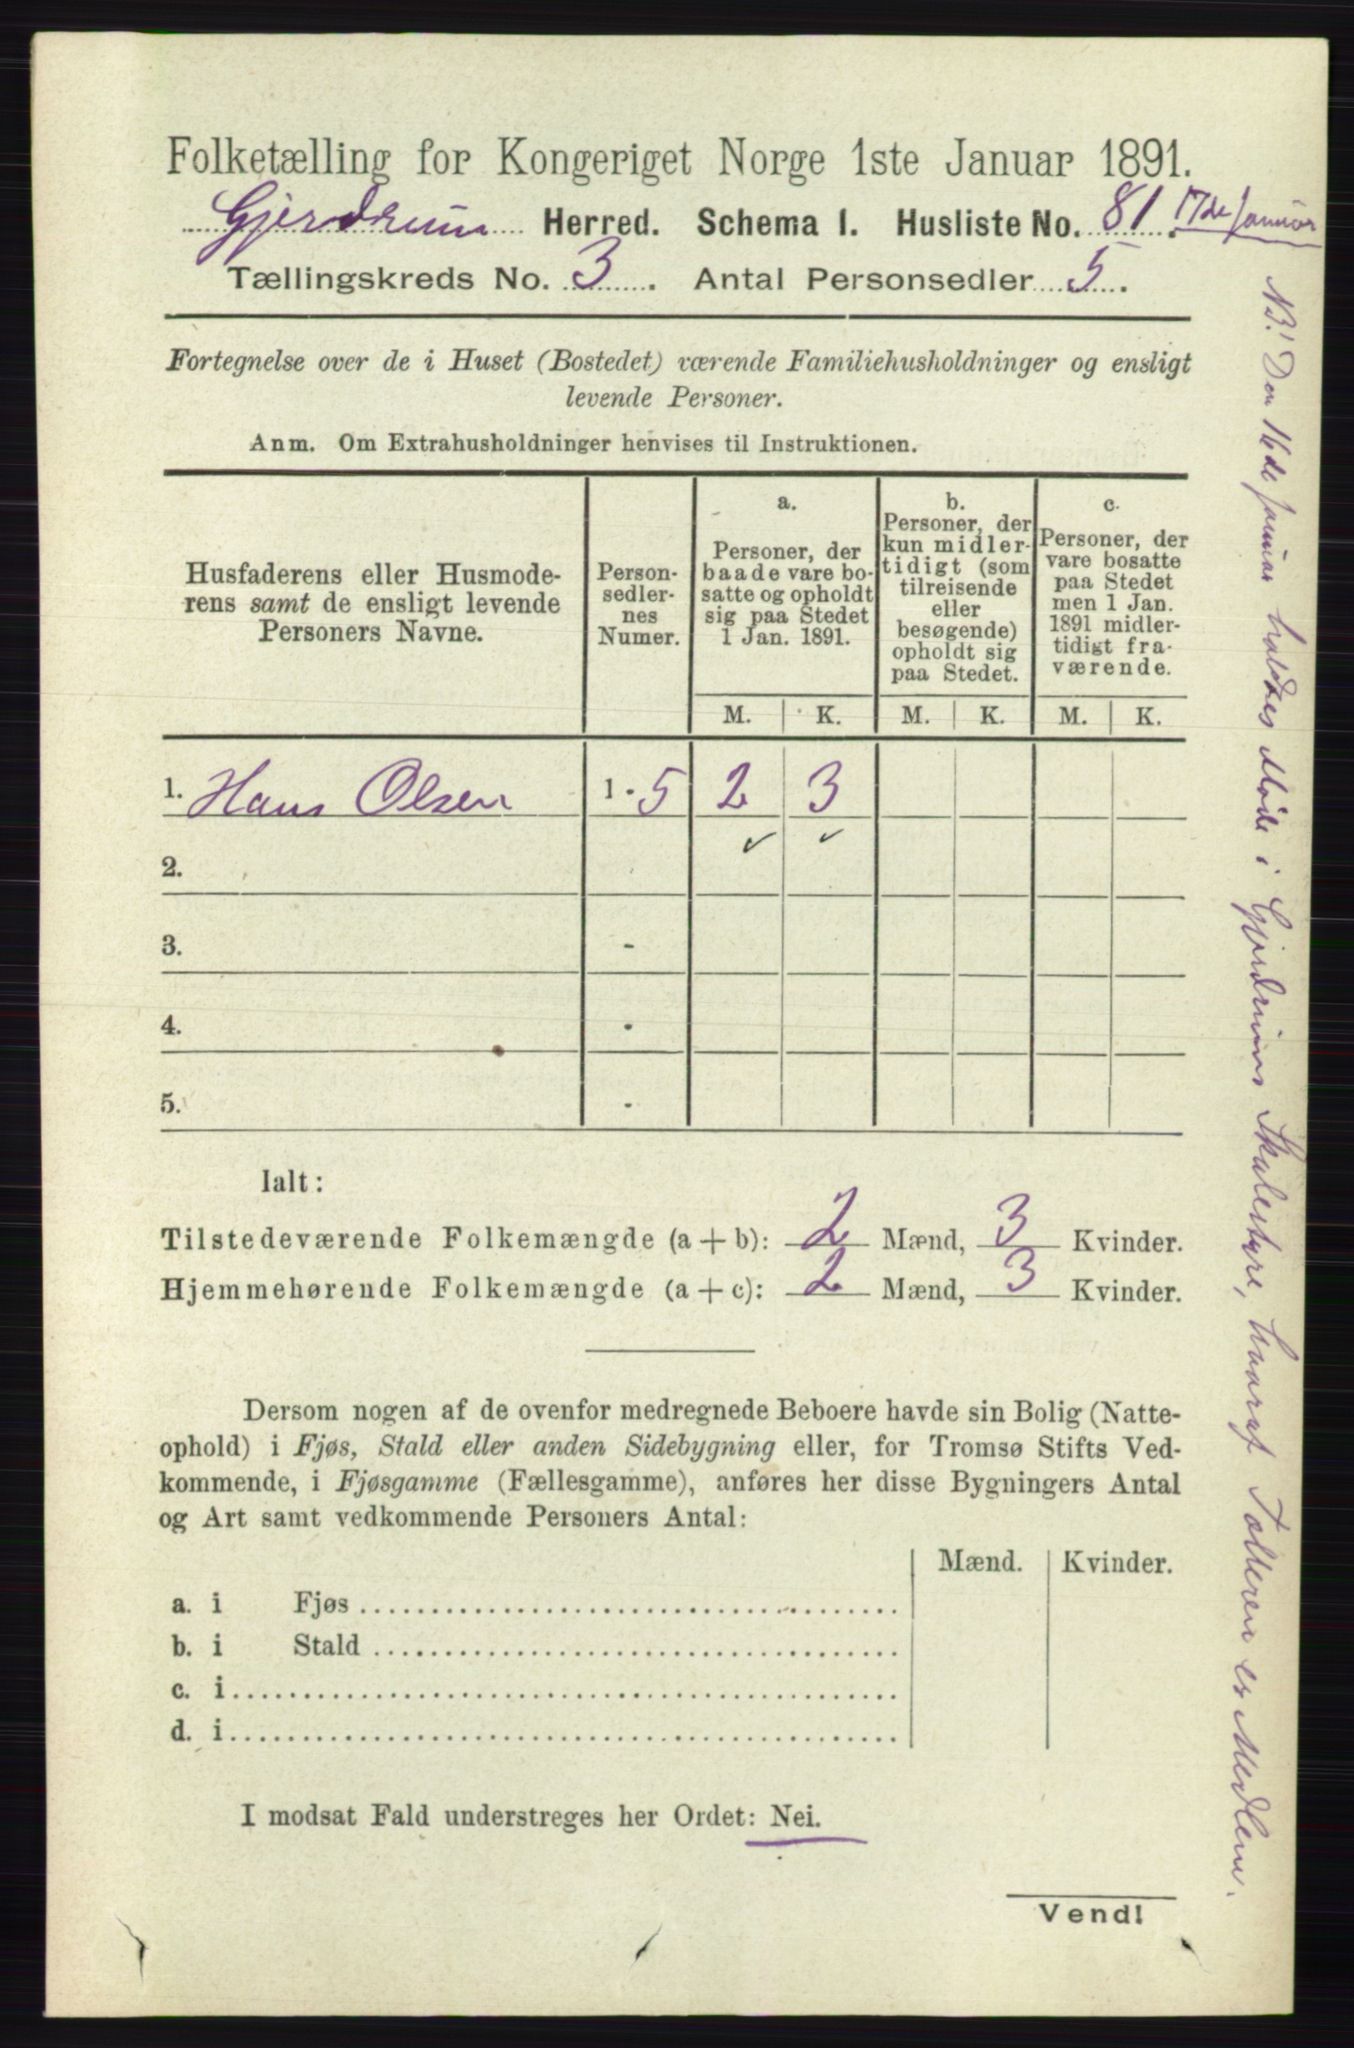 Folketælling for Kongeriget Norge 1ste Januar 1891.
Gjerdrum Herred. Schema I. Husliste No. 81. 17de Januar
Tællingskreds No. 3. Antal Personsedler 5.
Fortegnelse over de i Huset (Bostedet) værende Familiehusholdninger og ensligt
levende Personer.
Anm. Om Extrahusholdninger henvises til Instruktionen.
Husfaderens eller Husmode-
rens samt de ensligt levende
Personers Navne.
Person-
sedler-
nes
Numer.
a.
Personer, der
baade vare bo-
satte og opholdt
sig paa Stedet
1 Jan. 1891.
b.
Personer, der
kun midler-
tidigt (som
tilreisende
eller
besøgende)
opholdt sig
paa Stedet.
c.
Personer, der
vare bosatte
paa Stedet
men 1 Jan.
1891 midler-
tidigt fra-
værende.
M. K. M. K. M. K.
1. Hans Olsen 1 - 5 2 3
2.
3. -
4. -
5. -
Ialt:
Tilstedeværende Folkemængde (a + b): 2 Mænd, 3 Kvinder.
Hjemmehørende Folkemængde (a + c): 2 Mænd, 3 Kvinder.
Dersom nogen af de ovenfor medregnede Beboere havde sin Bolig (Natte-
ophold) i Fjøs, Stald eller anden Sidebygning eller, for Tromsø Stifts Ved-
kommende, i Fjøsgamme (Fællesgamme), anføres her disse Bygningers Antal
og Art samt vedkommende Personers Antal:
Mænd. Kvinder.
a. i Fjøs
b. i Stald
c. i
d. i
I modsat Fald understreges her Ordet: Nei.
Vend!
NB! Den 16de Januar holdtes Møde i Gjerdrums Skolestyre, hvoraf Tælleren er Medlem.